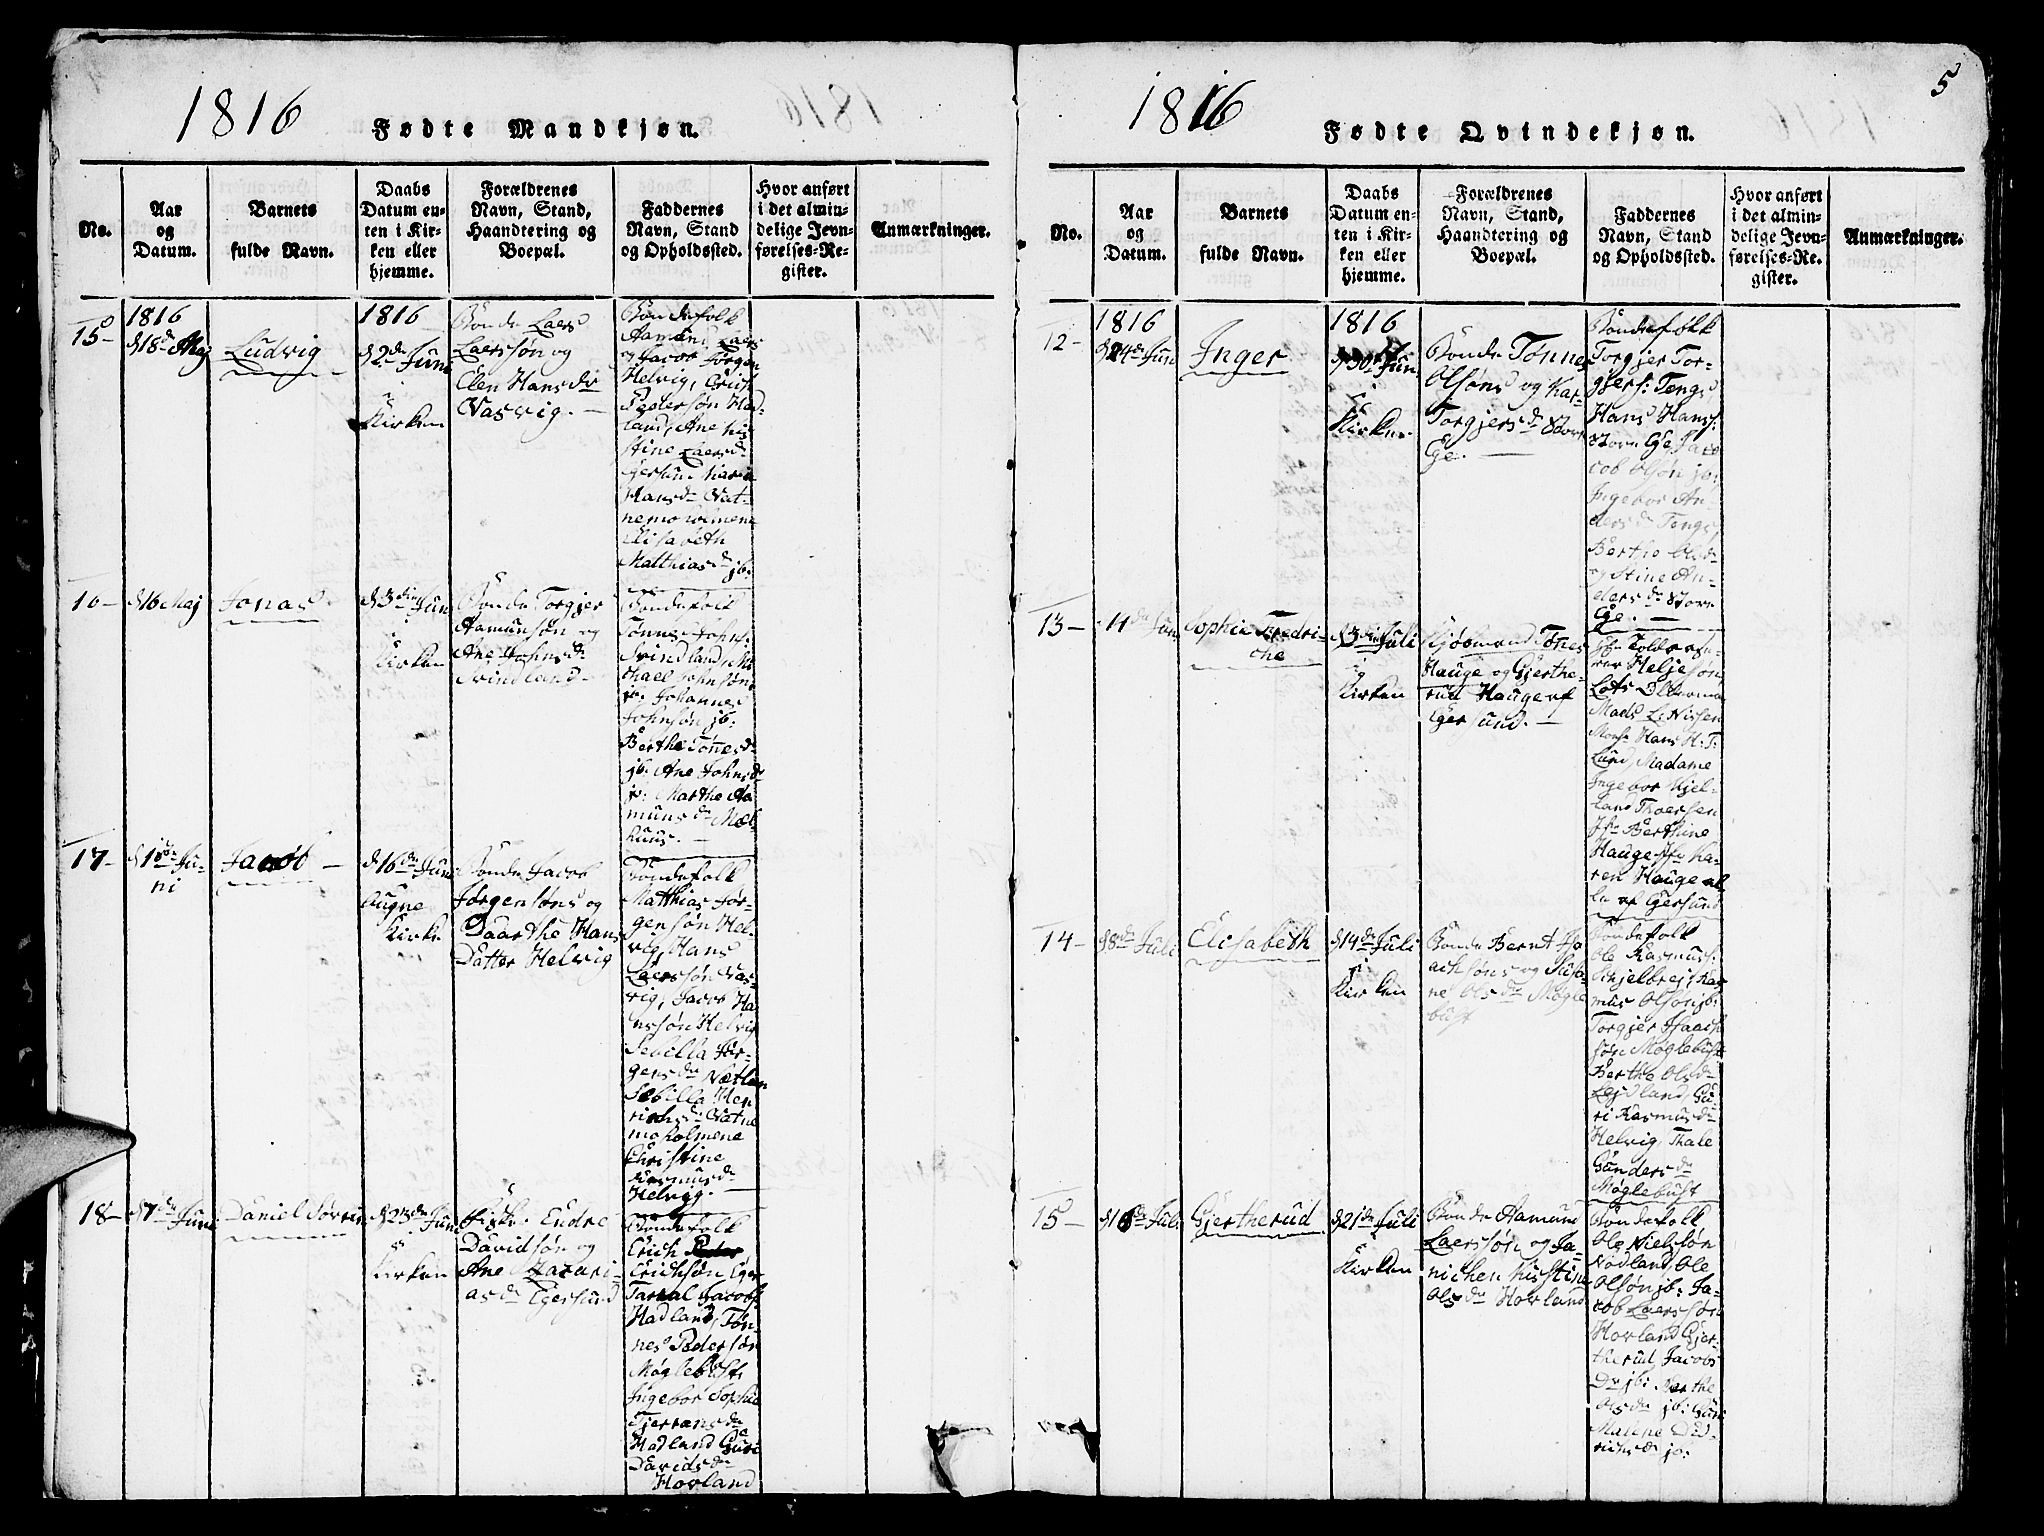 1816
Fødte Mandkjøn.
No.
Aar
og
Datum.
Barnets
fulde Navn.
Daabs
Datum en-
ten i Kir-
ken eller
hjemme.
Forældrenes
Navn, Stand,
Haandtering og
Boepæl.
Faddernes
Navn, Stand
og Opholdssted.
Hvor anført
i det almin-
delige Jevn-
førelses-Re-
gister.
Anmærkninger.
15
1816
d 18de Maj
Ludvig
1816
d 2den Juni
i
Kirken
Bonde Laers
Laerssøn og
Elen Hansdr
Vasvig.
Bondefolk
Aamun Laers
og Jacob Jørgen
Helvig, Erich
Pedersøn Had-
land, Ane
stine Laersdr
Hansdr Vat-
Elisabeth
Matthiasdr jb:
16 -
d 16 Maj
Jonas
d 3die Jun
i
Kirken
Bonde Torgjer
Aamunsøn og
Ane Johnsdr
Svindland
Bondefolk
Tønnes Johns:
Svindland, Mi
chael Johnsøn
jb: Johannes
Johnsøn jb:
Berthe Tønnesdr
jb: Ane Johnsdr
jb: Marthe Aa-
munsdr Mæl-
huus.
17 -
d 1ste Ju-
ni
Jacob
d 16de Juni
Kirke
Bonde Jacob
Jørgensøns og
Daarthe Hans
Datter Helvig
Bondefolk
Matthias Jør-
gensøn Hel-
vig, Hans
Laerssøn Vas-
vig, Jacob Ha
nssøn Helvig
Sebilla Jør-
gensdr
Sebilla Hen
richsdr Vatne
moholmene
Christine
Rasmusdr
Helvigg.
18 -
d 7de Juni
Daniel Sørrin
d 23de Juni
i
Kirken
Endre
Davidsøn og
Ane Mazari-
asdr Egersund
Bondefolk
Erich
Erichsøn Eger
Tarral Jacobs:
Hadland, Tøn-
nes Pedersøn
Møglebust,
Ingebor Sophie
Tjerransdr
Hadland Guri
Davidsdr
Hovland
1816
5
Fødte Qvindekjøn.
No.
Aar
og
Datum.
Barnets
fulde Navn.
Daabs
Datum en-
ten i Kir-
ken eller
hjemme.
Forældrenes
Navn, Stand,
Haandtering og
Boepæl.
Faddernes
Navn, Stand
og Opholdssted.
Hvor anført
i det almin-
delige Jevn-
førelses-Re-
gister.
Anmærkninger.
12 -
1816
d 24de Jun
Inger
1816
d 30te Jun
i
Kirken
Bonde Tønnes
Olsøns og Kar-
Torgjersdr Store
Ege.
Bondefolk
Torgjer Tor-
gjers: Tengs
Hans Hans:
Store Ege, Ja
cob Olsøn jb:
Ingebor An-
dersdr Tengs,
Berthe Olsdr
og Stine An-
dersdr Store
Ege.
13 -
14de Jun
Sophie Fredri-
che
d 3die Juli
i
Kirken
Kjøbmand Tønes
Hauge og Gjerthe-
rud Hauge af
Egersund.
Heljesøn,
Lots Olderma
Mads L: Nissen
Monsr Hans H: T:
Lund, Madame
Ingebor Kjel-
land Thorsen
Jfr Berthine
Hauge Jfr Ka-
ren Hauge al
le af Egersund
14 -
d 8de Juli
Elisabeth
d 14de Juli
i
Kirken
Bonde Bernt Isa
achsøns og Susa-
ne Olsdr Møgle
bust
Bondefolk
Ole Rasmus:
Skjelbrej, Ras
mus Olsøn jb:
Torgjer Isaach
søn Møglebust
Berthe Olsdr
Lejdland, Gu
ri Rasmusdr
Helvig, Thale
Gundersdr
Møglebust
15 -
d 16de Juli
Gjertherud
d 21de Juli
i
Kirken
Bonde Aamund
Laerssøn og Ja-
nichen Kirstine
Olsdr Hovland
Bondefolk
Ole Nielsøn
Nodland, Ole
Olsøn jb: Ja-
cob Laerssøn
Hovland Gjer-
therud Jacobs
Dr jb: Berthe
Olsdr jb: Guri
Malene Did-
richsdr jb: